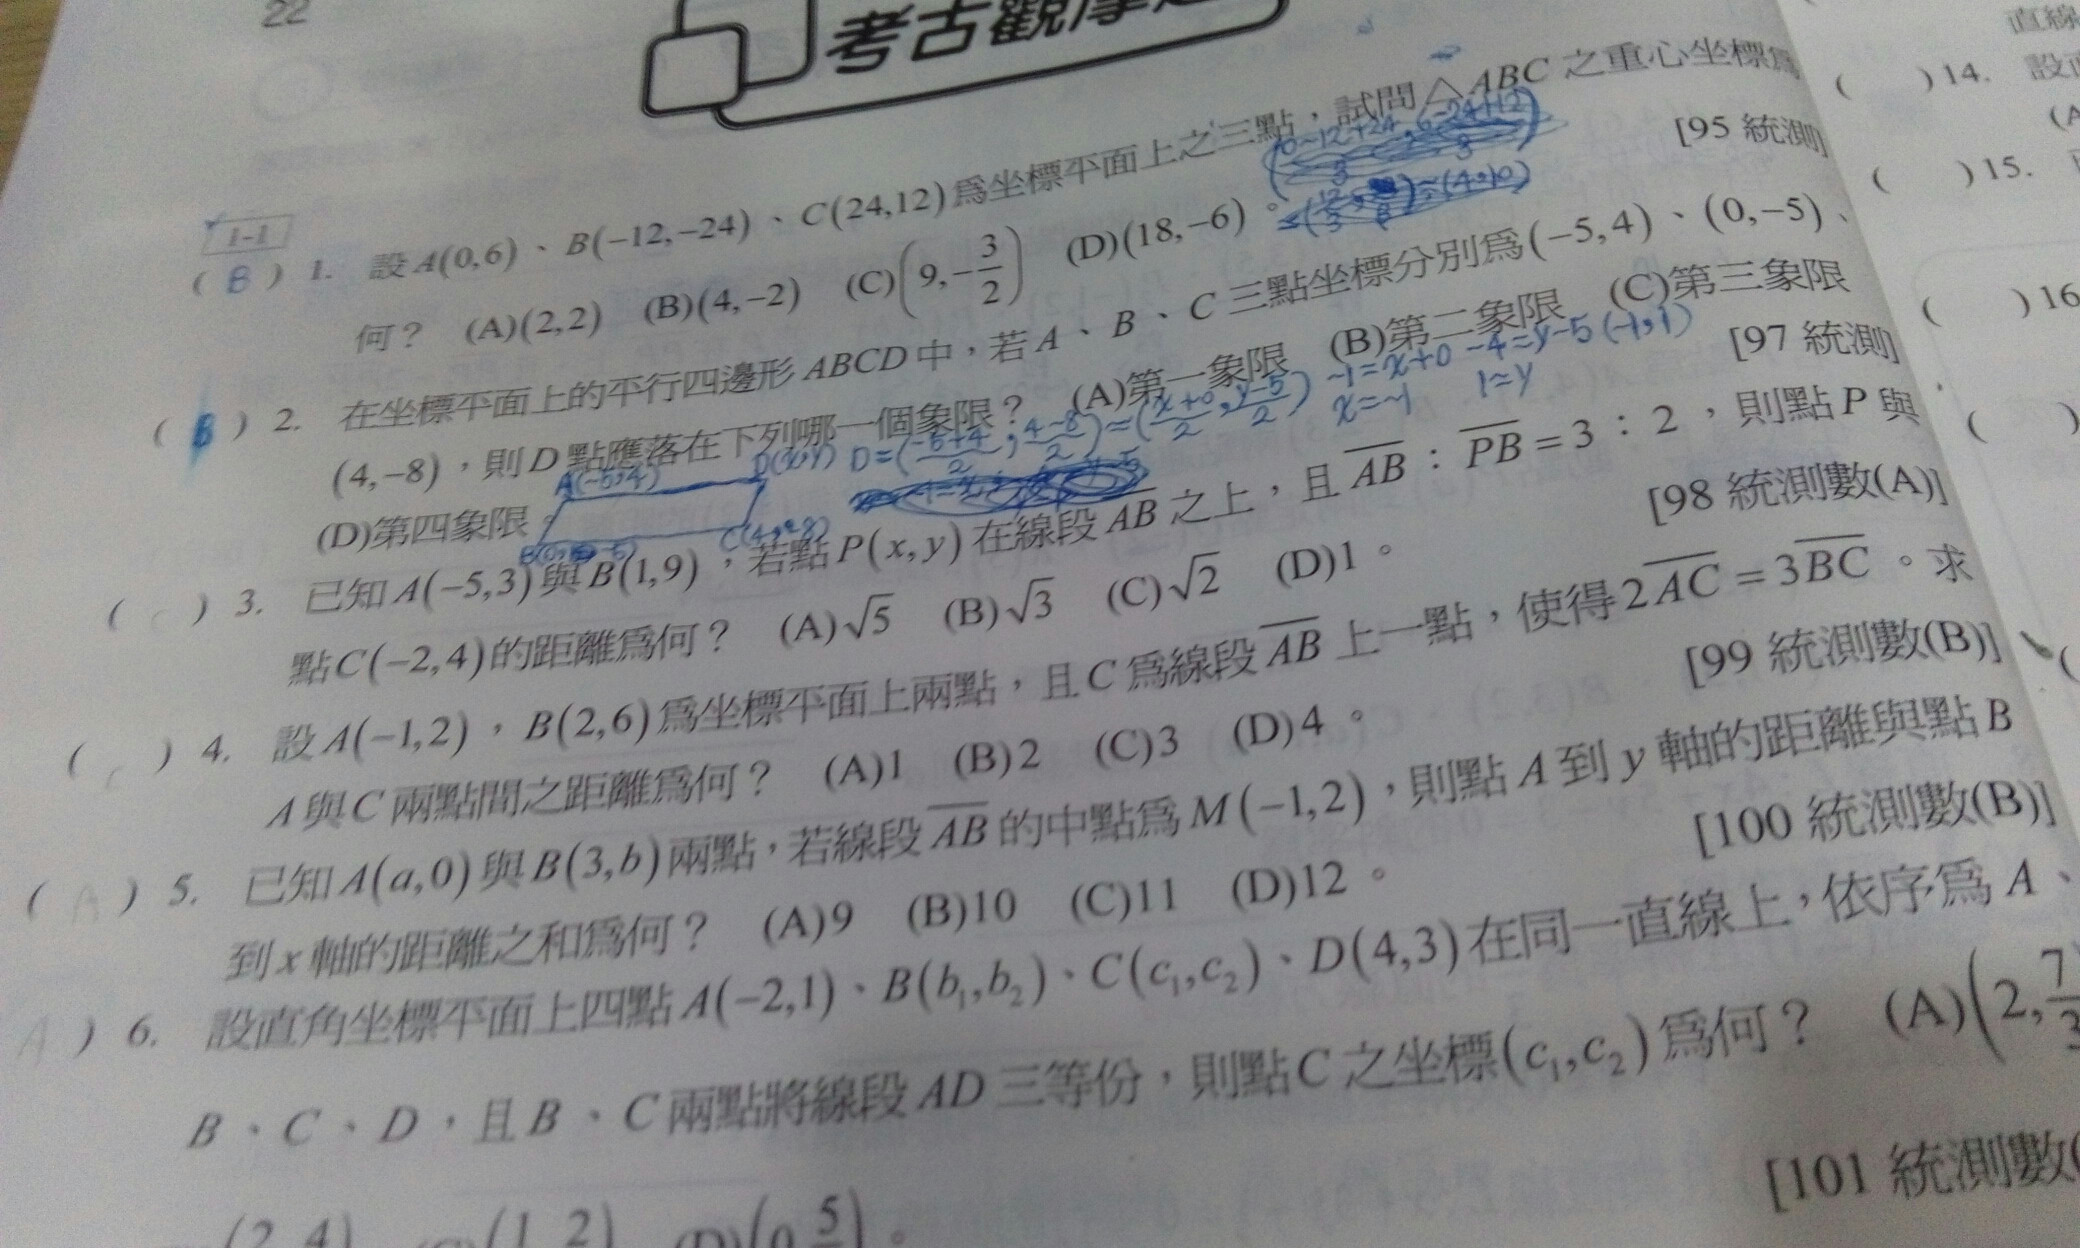 22
考古觀摩
1-1
( B ) 1. 設A(0,6)、B(−12,−24)、C(24,12)爲坐標平面上之三點，試問△ABC之重心坐標爲
何？ (A)(2,2) (B)(4,−2) (C)(9,−3/2) (D)(18,−6)。 [95 統測]
( B ) 2. 在坐標平面上的平行四邊形ABCD中，若A、B、C三點坐標分別爲(−5,4)、(0,−5)、
(4,−8)，則D點應落在下列哪一個象限？ (A)第一象限 (B)第二象限 (C)第三象限
(D)第四象限 [97 統測]
A(−5,4) D(x,y) D=(−5+4/2, 4−8/2)=(x+0/2, y−5/2) −1=x+0 −4=y−5 (−1,1)
x=−1 1=y
C(4,−8)
( C ) 3. 已知A(−5,3)與B(1,9)，若點P(x,y)在線段AB之上，且AB：PB=3：2，則點P與
點C(−2,4)的距離爲何？ (A)√5 (B)√3 (C)√2 (D)1。 [98 統測數(A)]
( C ) 4. 設A(−1,2)，B(2,6)爲坐標平面上兩點，且C爲線段AB上一點，使得2AC=3BC。求
A與C兩點間之距離爲何？ (A)1 (B)2 (C)3 (D)4。 [99 統測數(B)]
( A ) 5. 已知A(a,0)與B(3,b)兩點，若線段AB的中點爲M(−1,2)，則點A到y軸的距離與點B
到x軸的距離之和爲何？ (A)9 (B)10 (C)11 (D)12。 [100 統測數(B)]
A ) 6. 設直角坐標平面上四點A(−2,1)、B(b₁,b₂)、C(c₁,c₂)、D(4,3)在同一直線上，依序爲A、
B、C、D，且B、C兩點將線段AD三等份，則點C之坐標(c₁,c₂)爲何？ (A)(2,7/3
[101 統測數(
(2,4) (1,2) (D)(0,5
直線
( ) 14. 設
(A
( ) 15.
( ) 16
( )
(